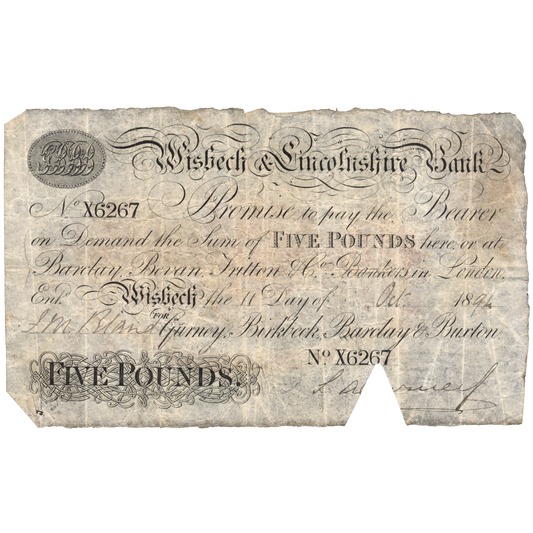 Wisbech & Lincolnshire Bank
No. X6267 Promise to pay the Bearer
on Demand the Sum of FIVE POUNDS here or at
Barclay, Bevan, Tritton & Co. Bankers in London.
Entd. Wisbech the 11 Day of Oct 189
FOR
Gurney, Birkbeck, Barclay & Buxton
No X6267
FIVE POUNDS.